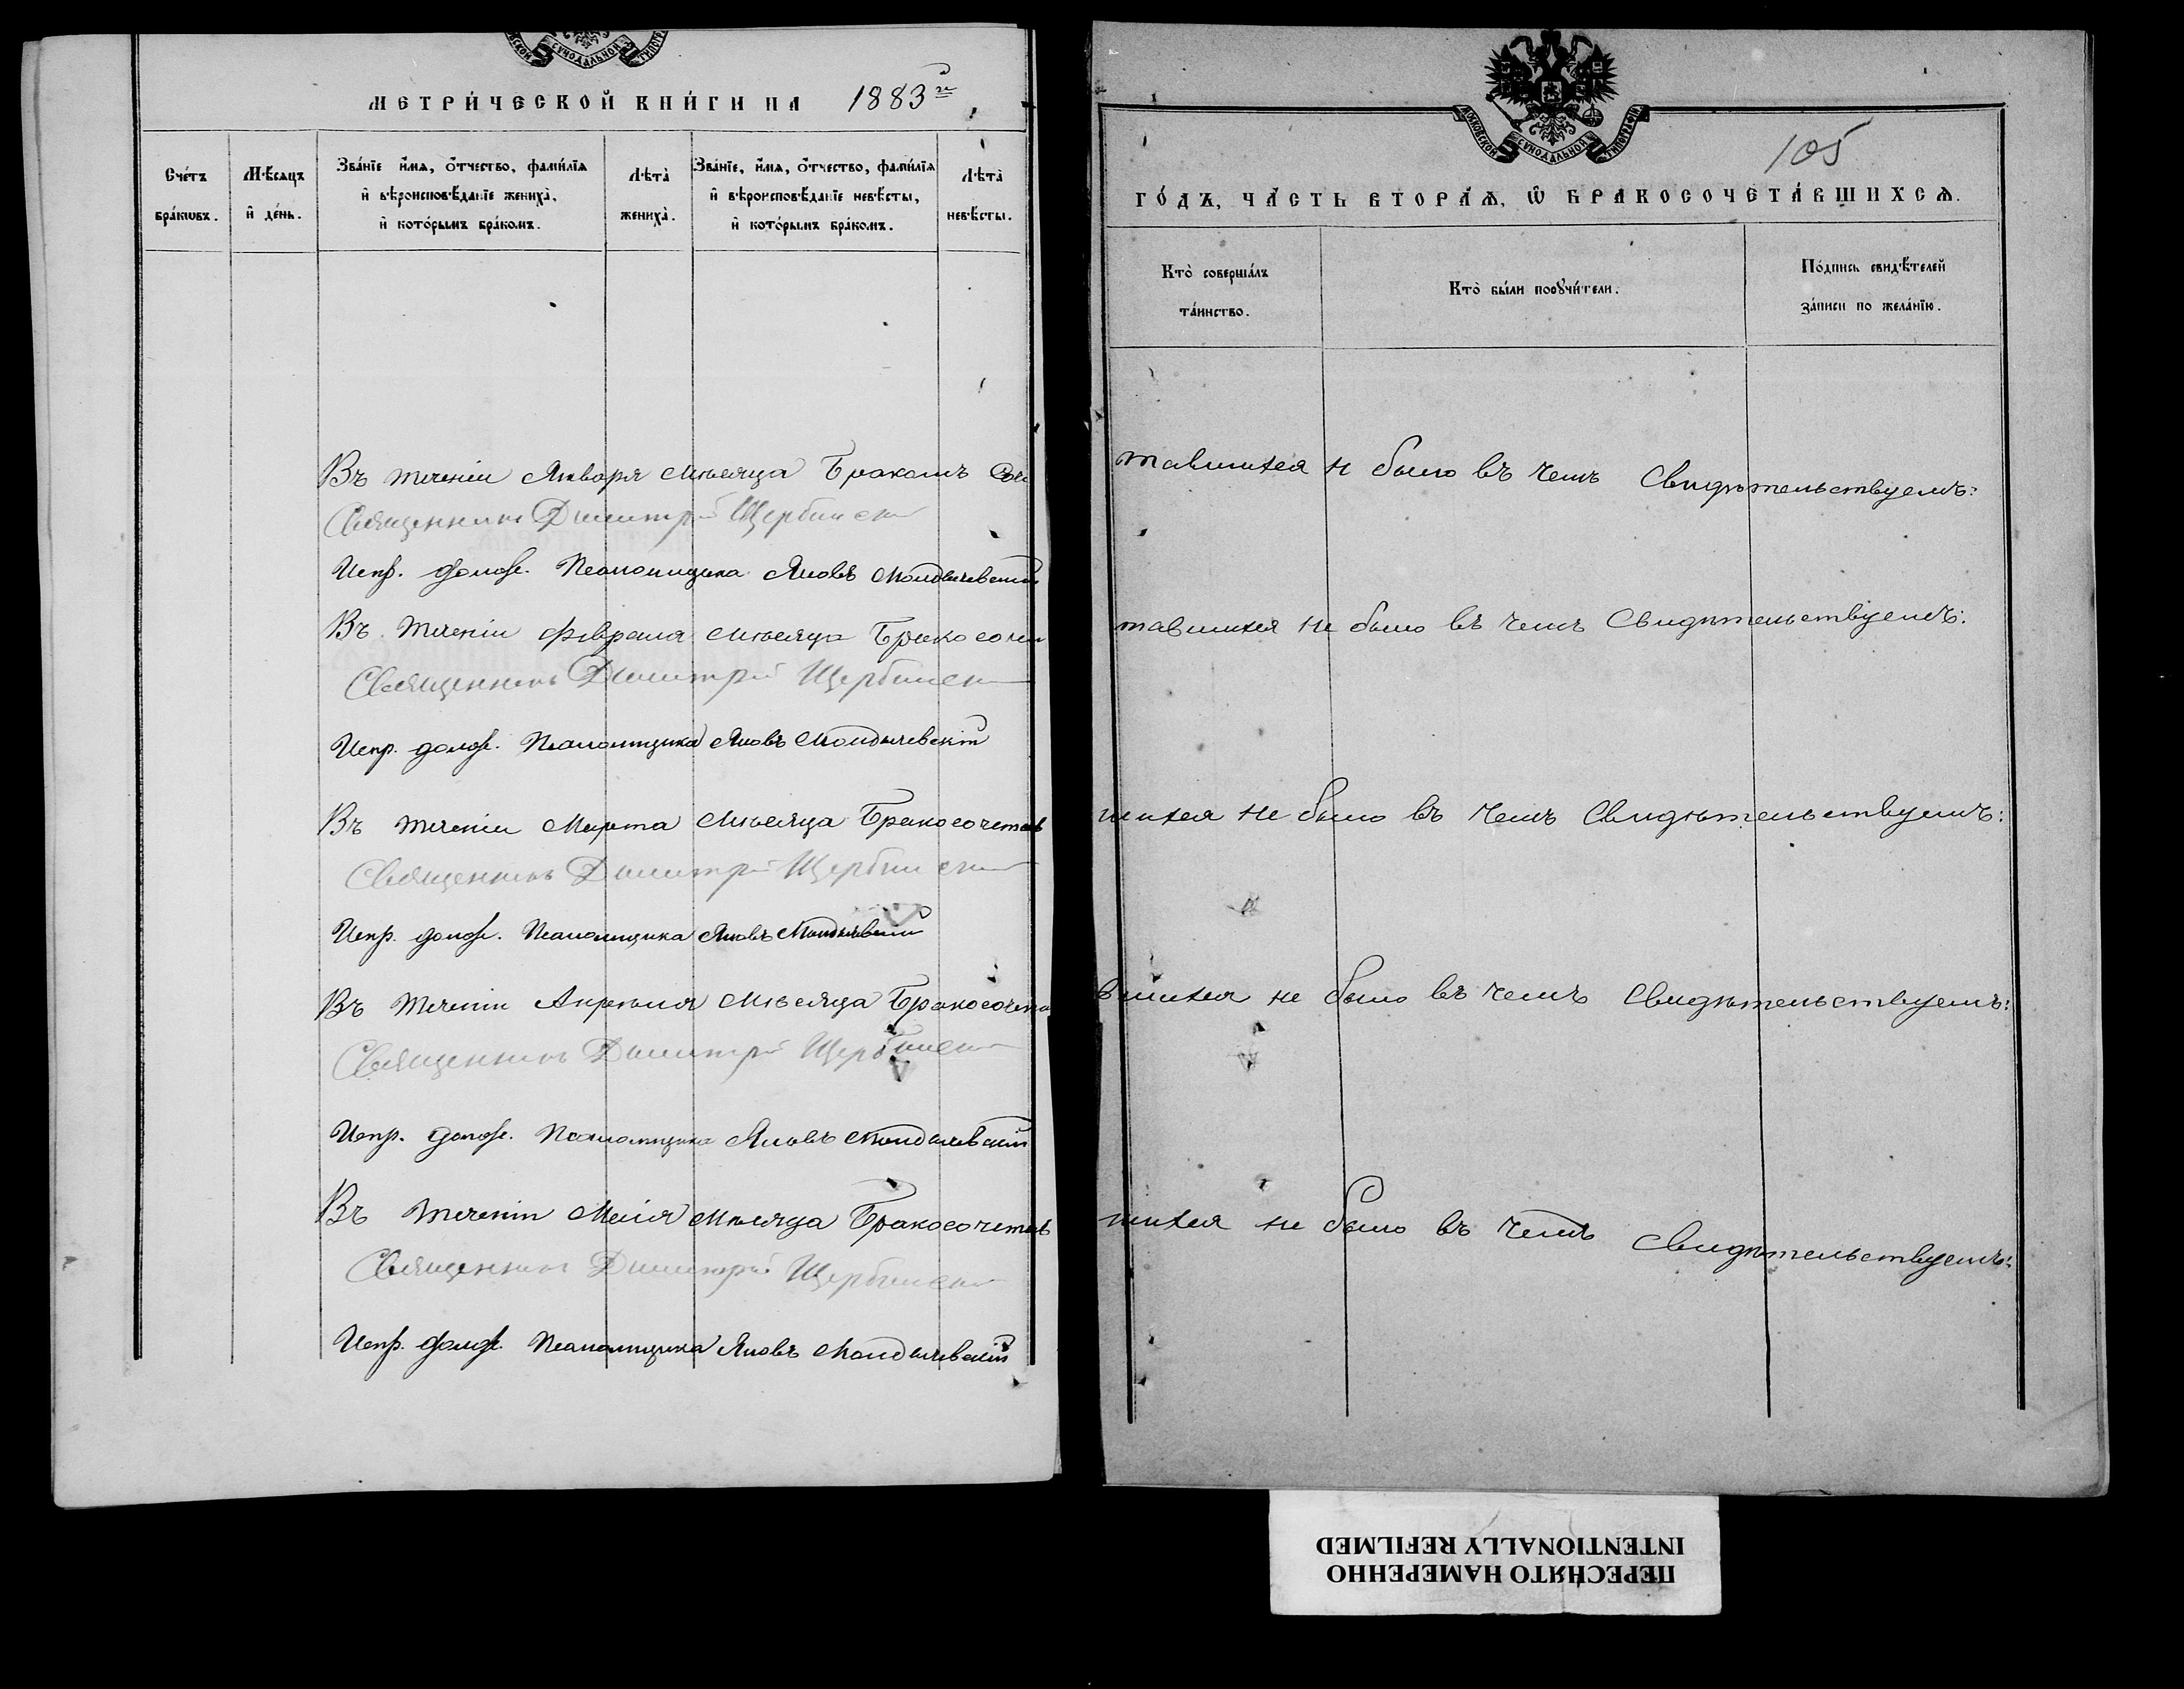 МЕТРИ́ЧЕСКОЙ КНИ́ГИ НА 1883й
Сче́тъ бра́кѡвъ.
Мѣ́сяцъ и҆ де́нь.
Зва́нїе и҆́мя, ѻ҆́тчество, фами́лїя и҆ вѣроисповѣ́данїе жениха̀, и҆ кото́рымъ бра́комъ.
Лѣ́та жениха̀.
Зва́нїе, и҆́мя, ѻ҆́тчество, фами́лїя и҆ вѣроисповѣ́данїе невѣ́сты, и҆ кото́рымъ бра́комъ.
Лѣ́та невѣ́сты.
Въ теченіи Января мѣсяца Бракомъ Соче
Священникъ Димитрій Щербинскій
Испр. долж. Псаломщика Яковъ
Въ теченіи Февраля мѣсяца Бракосоче
Священникъ Димитрій Щербинскій
Испр. долж. Псаломщика Яковъ
Въ теченіи Марта мѣсяца Бракосочетав
Священникъ Димитрій Щербинскій
Испр. долж. Псаломщика Яковъ
Въ теченіи Апрѣля мѣсяца Бракосочета
Священникъ Димитрій Щербинскій
Испр. долж. Псаломщика Яковъ
Въ теченіи Маія мѣсяца Бракосочетав
Священникъ Димитрій Щербинскій
Испр. долж. Псаломщика Яковъ
МОСКОВСКОЙ СѴНОДАЛЬНОЙ ТИПОГРАФІИ
105
ГО́ДЪ, ЧА́СТЬ ВТОРА́Я, Ѡ҆ БРАКОСОЧЕТА́ВШИХСЯ.
Кто̀ соверша́лъ та́инство.
Кто̀ бы́ли порꙋчи́тели.
По́дпись свидѣ́телей за́писи по жела́нїю.
тавшихся н было въ чемъ Свидѣтельствуемъ:
тавшихся не было въ чемъ Свидѣтельствуемъ:
шихся не было въ чемъ Свидѣтельствуемъ:
вшихся не было въ чемъ Свидѣтельствуемъ:
шихся не было въ чемъ Свидѣтельствуемъ:
ПЕРЕСНЯТО НАМЕРЕННО
INTENTIONALLY REFILMED